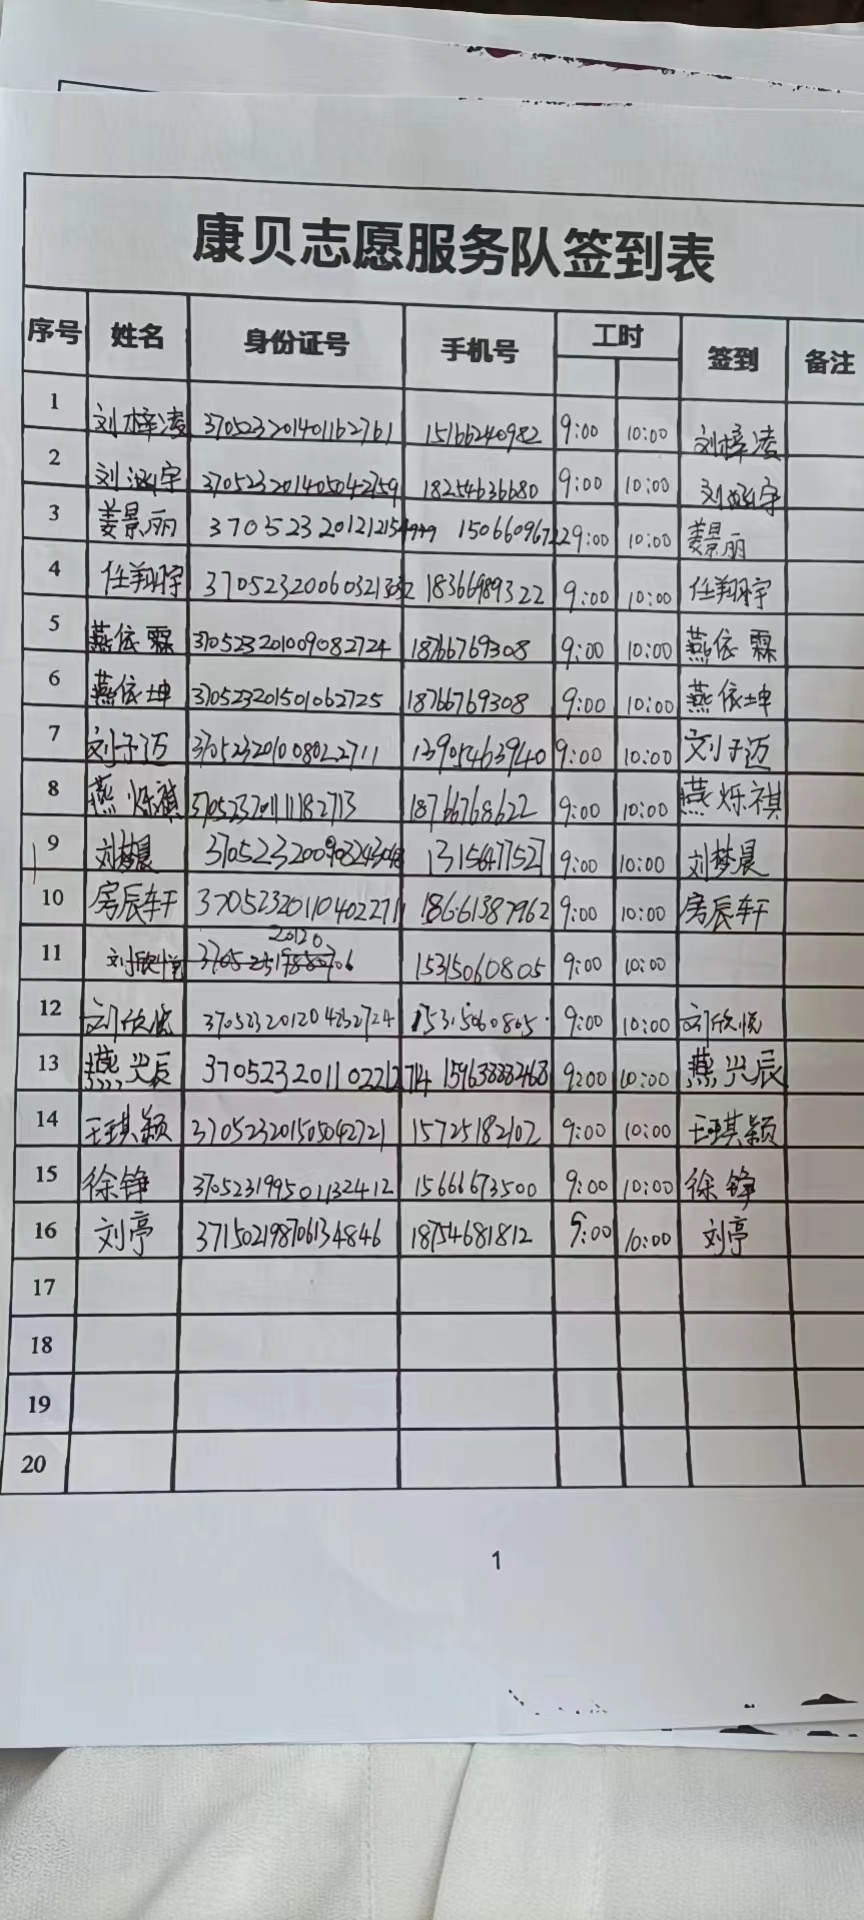 康贝志愿服务队签到表
序号 姓名 身份证号 手机号 工时 签到 备注
1 刘梓凌 370523201401162761 15166240982 9:00 10:00 刘梓凌
2 刘涵宇 370523201405042759 18254636680 9:00 10:00 刘涵宇
3 姜景丽 15066096722 9:00 10:00 姜景丽
4 任翔宇 18366989322 9:00 10:00 任翔宇
5 燕依霖 370523201009082724 18766769308 9:00 10:00 燕依霖
6 燕依坤 370523201501062725 18766769308 9:00 10:00 燕依坤
7 刘子迈 370523201008022711 13905463940 9:00 10:00 刘子迈
8 燕烁祺 370523201111182713 18766768622 9:00 10:00 燕烁祺
9 刘梦晨 9:00 10:00 刘梦晨
10 房辰轩 370523201104022711 18661387962 9:00 10:00 房辰轩
11 刘欣悦 15315060805 9:00 10:00
12 刘欣悦 15315060805 9:00 10:00 刘欣悦
13 燕兴辰 15963888468 9:00 10:00 燕兴辰
14 王琪颖 370523201505042721 15725182102 9:00 10:00 王琪颖
15 徐铮 370523199501132412 15666673500 9:00 10:00 徐铮
16 刘亭 371502198706134846 18754681812 9:00 10:00 刘亭
17
18
19
20
1